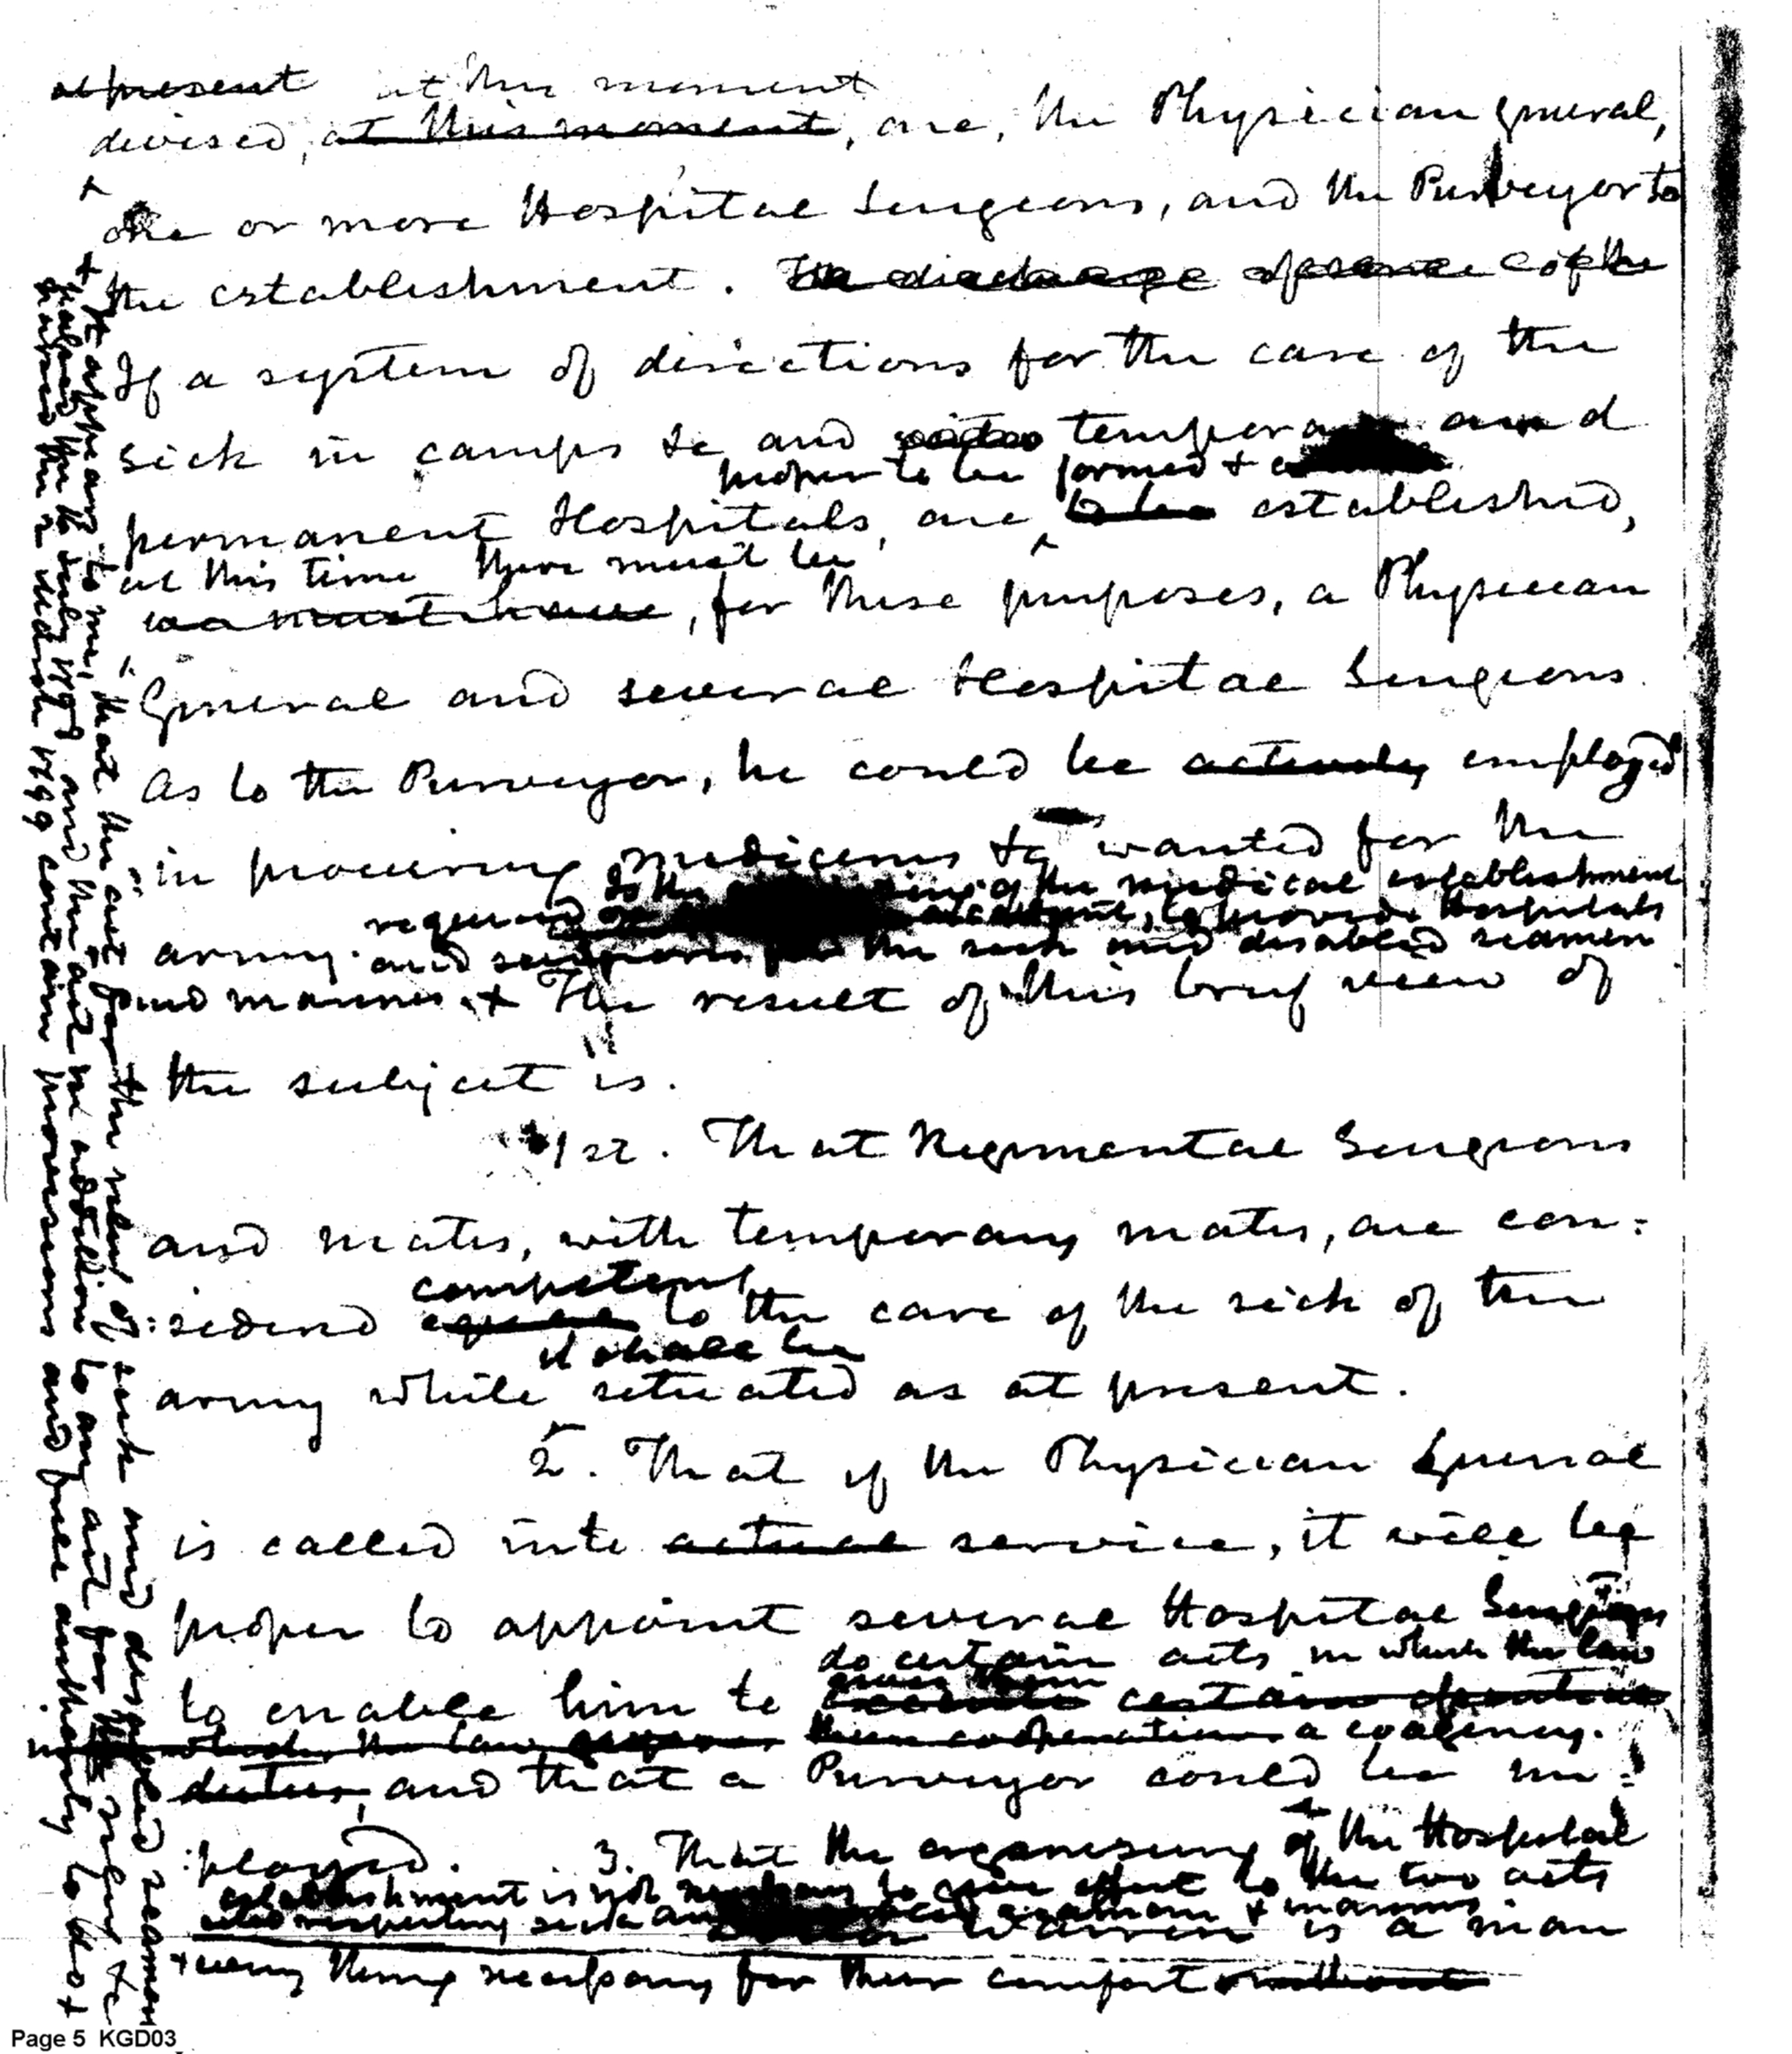 at present at this moment
devised, at this moment, are, the Physician General,
one or more Hospital Surgeons, and the Purveyor to
the establishment. The discharge of some of the
If a system of directions for the care of the
sick in camps &c and temporary and
proper to be formed &
permanent Hospitals, are to be established,
at this time there must be
we must have, for these purposes, a Physician
General and several Hospital Surgeons
As to the Purveyor, he could be actively employed
in procuring medicines &c wanted for the
to the of the medical establishment
required to provide Hospitals
army. and for the sick and disabled seamen
and marines. + The result of this brief view of
the subject is.
1st. That Regimental Surgeons
and mates, with temporary mates, are con:
competent
:sidered equal to the care of the sick of the
it shall be
army while situated as at present.
2. That if the Physician General
is called into actual service, it will be
proper to appoint several Hospital Surgeons
do certain acts in which the law
gives them
to enable him to execute certain
in which the law their cooperation a coagency.
duties, and that a Purveyor could be em:
:ployed. 3. That the organising of the Hospital
establishment is not necessary to give effect to the two acts
respecting sick and seamen & marines.
Warren is a man
+ every thing necessary for their comfort without
+ It appears to me, that the act for the relief of sick and disabled seamen
passed the 16 July 1798 and the act in addition to any act for the relief &c
passed the 2 March 1799 contain provisions and full authority to do +
Page 5 KGD03